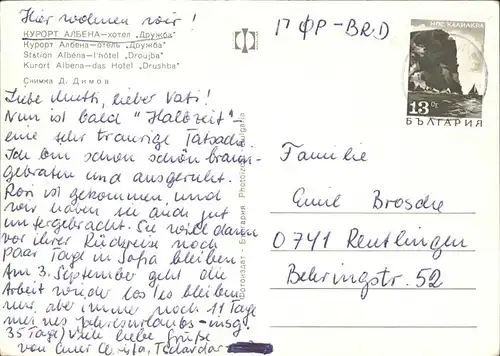 Hier wohnen wir!
КУРОРТ АЛБЕНА—хотел „Дружба"
Курорт Албена—отель „Дружба"
Station Albéna—l'hôtel „Droujba"
Kurort Albena—das Hotel „Drushba"
Снимка Д. Димов
Liebe Mutti, lieber Vati!
Nun ist bald "Halbzeit" -
eine sehr traurige Tatsache.
Ich bin schon schön braun-
gebraten und ausgeruht.
Rori ist gekommen, und
wir haben sie auch gut
untergebracht. Sie will dann
vor ihrer Rückreise noch
paar Tage in Sofia bleiben.
Am 3. September geht die
Arbeit wieder los (es bleiben
mir aber immer noch 11 Tage
meines Jahresurlaubs - insg.
35 Tage) Viele liebe Grüße
von Eurer
Фотоиздат - България Photoizdat - Bulgaria
П ФР-BRD
НОС КАЛИАКРА
13 ст
БЪЛГАРИЯ
Familie
Emil Brosche
0741 Reutlingen
Behringstr. 52